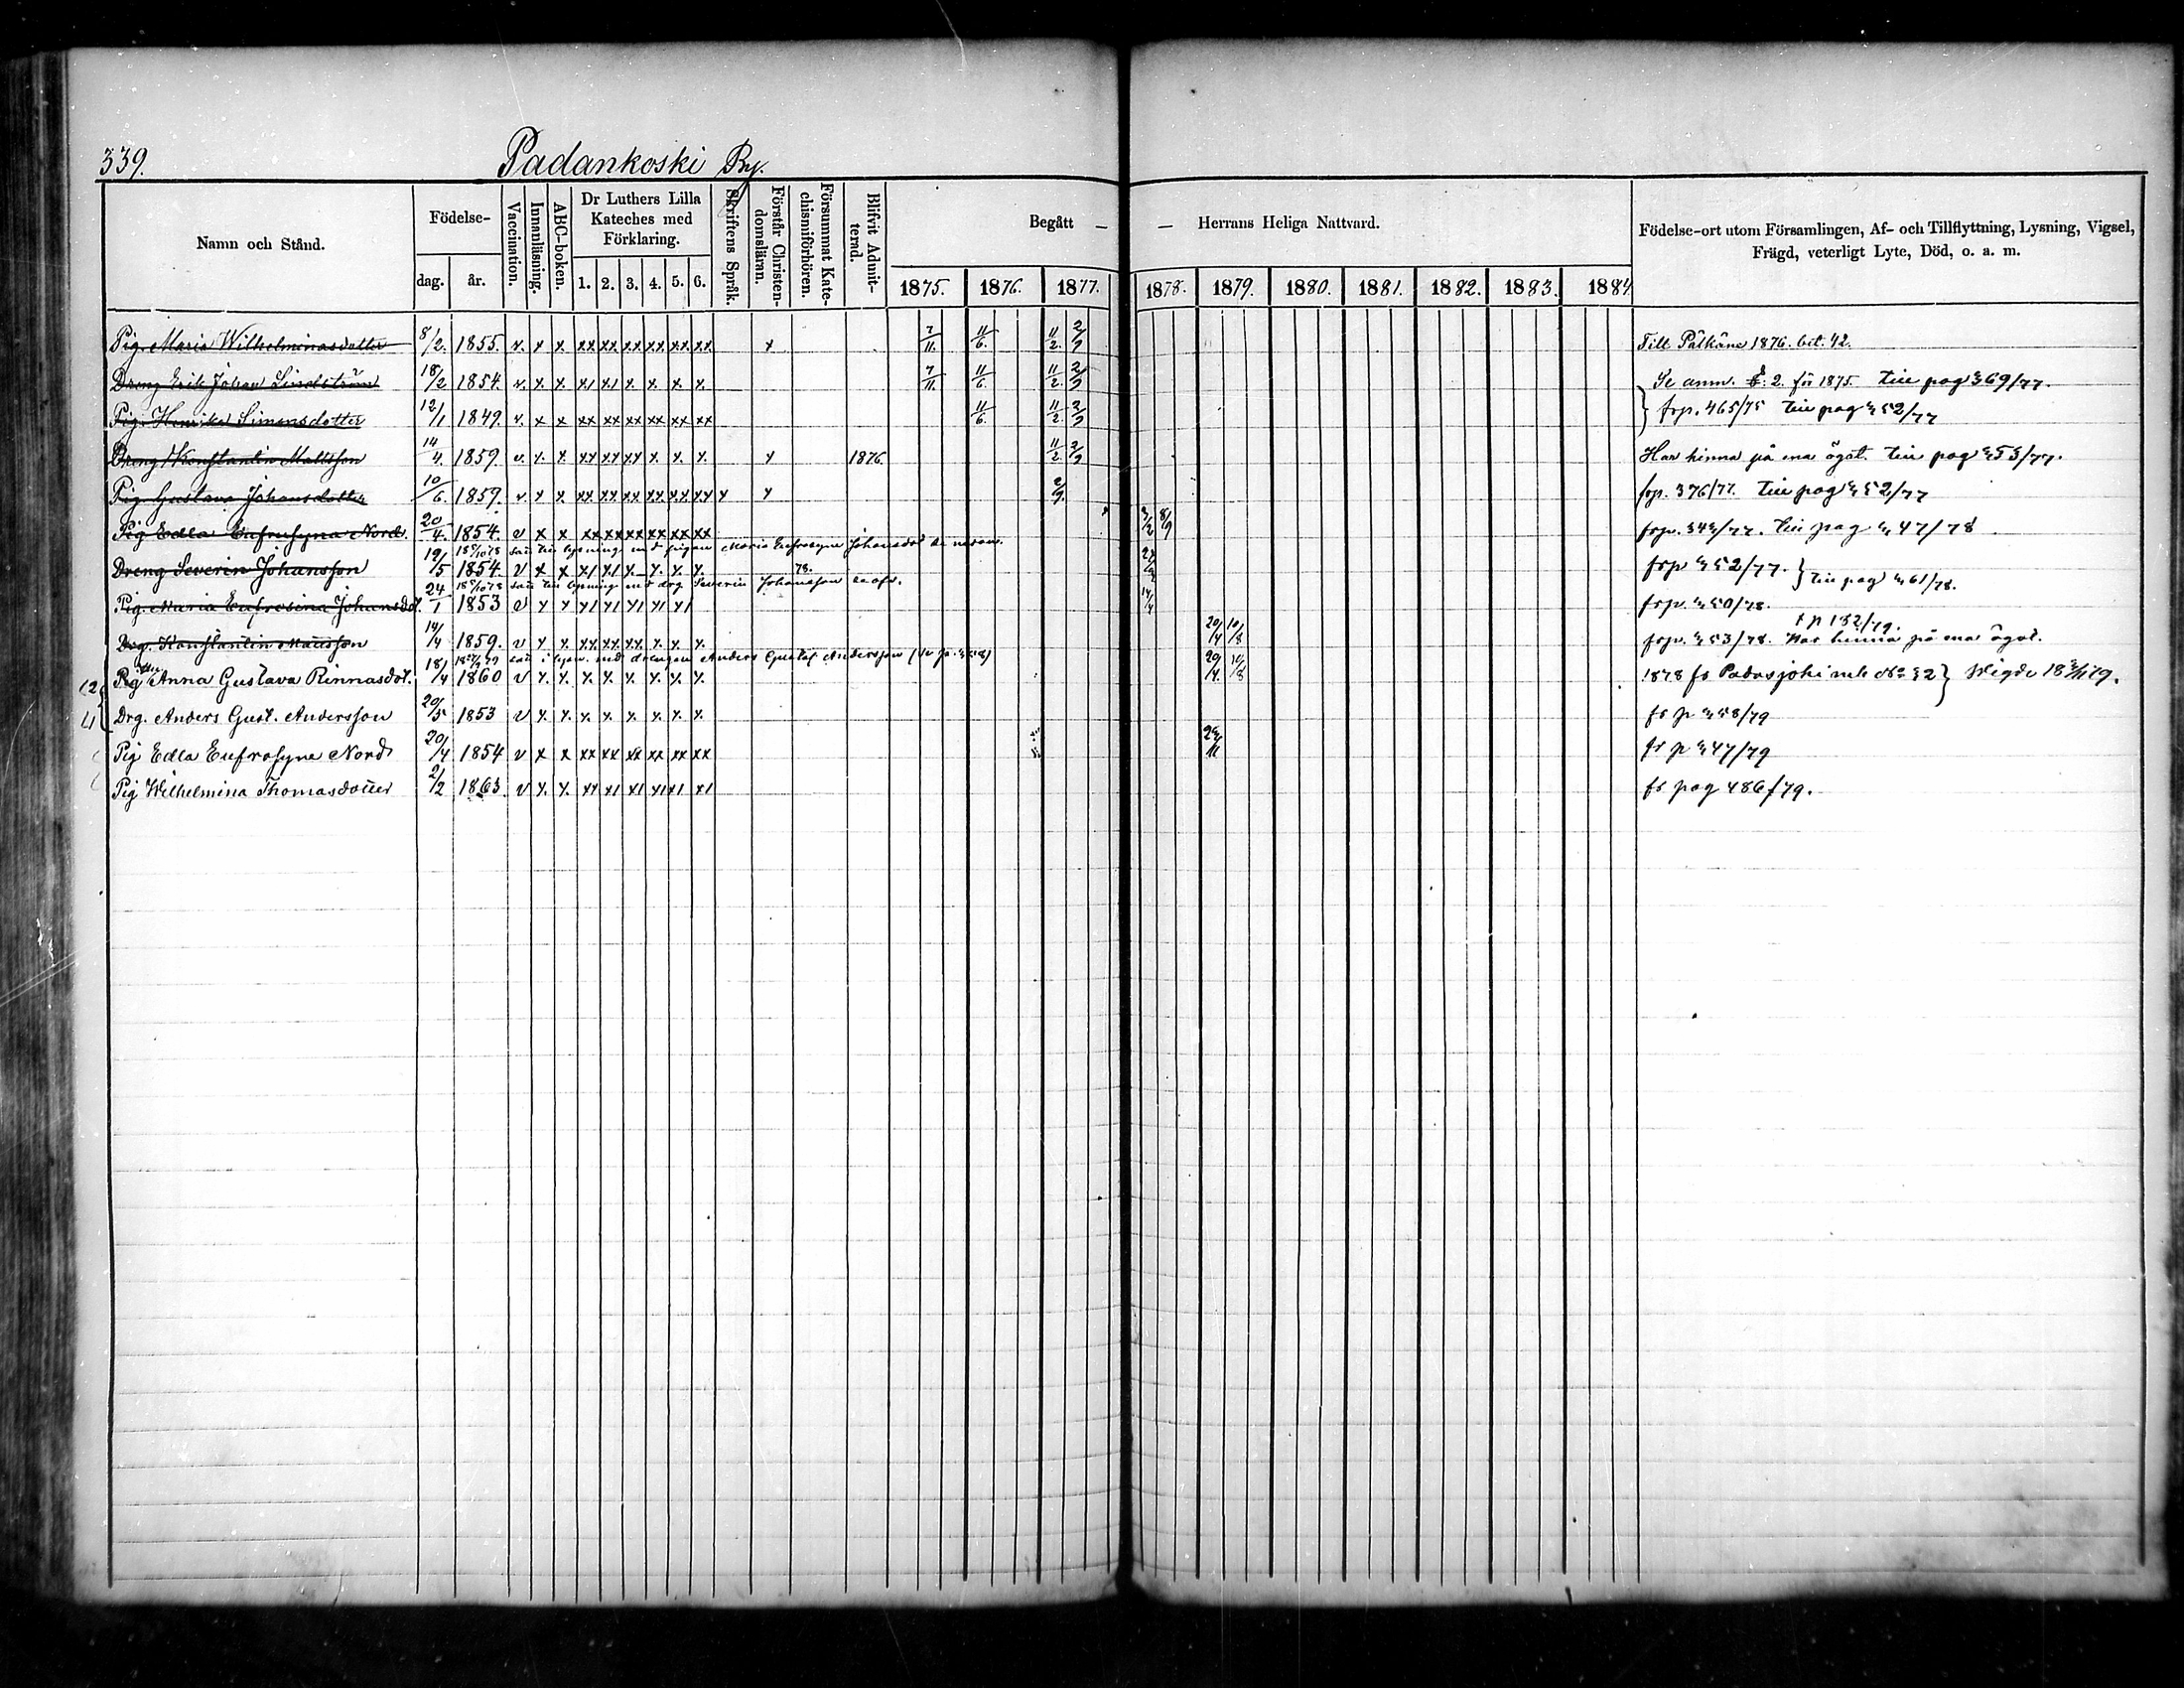 339. Padankoski By.
Namn och Stånd. Födelse- dag. år. Vaccination. Innanläsning. ABC-boken. Dr Luthers Lilla Kateches med Förklaring. 1. 2. 3. 4. 5. 6. Skriftens Språk. Förstår Christendomsläran. Försummat Katechismiförhören. Blifvit Admitterad. Begått — — Herrans Heliga Nattvard. 1875. 1876. 1877. 1878. 1879. 1880. 1881. 1882. 1883. 1884. Födelse-ort utom Församlingen, Af- och Tillflyttning, Lysning, Vigsel, Frägd, veterligt Lyte, Död, o. a. m.
Pig. Maria Wilhelminasdotter 8/2. 1855. v. x x xx xx xx xx xx xx x 7/11. 11/6. 11/2. 2/9 Till Pälkäne 1876. bet. 42.
Dreng Erik Johan Lindström 18/2 1854. v. x. x. x1 x1 x. x. x x. 7/11. 11/6. 11/2. 2/9 Se anm. 2. för 1875. till pag 369/77.
Pig. Henrika Simonsdotter 12/1 1849. v. x x xx xx xx xx xx xx 11/6. 11/2. 2/9 frp. 465/75 till pag 452/77
Dreng Konstantin Mattsson 14/4. 1859. v. x. x xx xx xx x. x. x. x 1876. 11/2. 2/9 Har hinna på ena ögat. till pag 453/77.
Pig. Gustava Johansdotter 10/6. 1859. v. x x. xx xx xx xx xx xx x x 2/9. frp. 376/77. till pag 452/77
Pig Edla Eufrosyna Nord. 20/4. 1854. v x x xx xx xx xx xx xx 8/9 frp. 343/77. till pag 447/78
till lysning med pigan Maria Eufrosyne Johansdot
Dreng Severin Johansson 19/5 1854. v x x x1 x1 x. x. x. x. frp 452/77. } till pag 461/78.
till lysning med drg Severin Johansson 78.
Pig. Maria Eufrosina Johansdot. 24/1 1853 v x x x1 x1 x1 x1 x1 14/4 frp. 450/78.
t p 132/79.
Drg. Konstantin Mattsson 14/4 1859. v x x. xx xx xx x. x. x. 20/4 10/8 frp. 453/78. Har hinna på ena ögat.
i lysn. med drengen Anders Gustaf Andersson
Pig Anna Gustava Rinnasdot. 18/4 1860 v x. x. x. x. x. x. x. x. 20/4. 10/8 1878 fr Padasjoki mb No 32 }
Drg. Anders Gust. Andersson 20/5 1853 v x. x. x. x. x. x. x. x. fr p 458/79
Pig Edla Eufrosyne Nord 20/4 1854 v x x xx xx xx xx xx xx fr p 447/79
Pig Wilhelmina Thomasdotter 2/2 1863 v x. x. xx x1 x1 x1 x1 x1 fr pag 486/79.